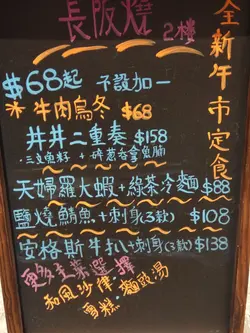 長阪燒 2樓
全新午市定食
$68起 不設加一
牛肉烏冬 $68
丼丼二重奏 $158
天婦羅大蝦+綠茶冷麵 $88
鹽燒鯖魚+刺身(3款) $108
安格斯牛扒+刺身(3款) $138
更多主菜選擇
和風沙律
雪糕・麵豉湯